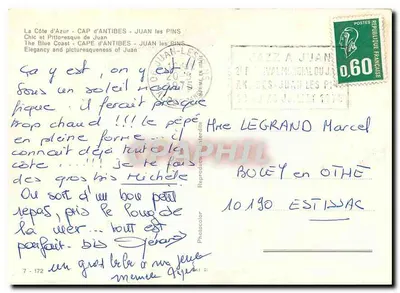 La Côte d'Azur - CAP d'ANTIBES - JUAN les PINS
Chic et Pittoresque de Juan
The Blue Coast - CAPE d'ANTIBES - JUAN les PINS
Elegancy and picturesqueness of Juan
ça y est, on y est !!
sous un soleil magni
fique. il ferait presque
trop chaud !!! le pépé
en pleine forme. il
connait déjà tout le
côté ...!!! je te fais
des gros bis Michèle
On sort d'un bon petit
repas, pris le long de
la mer... tout est
parfait - bis Gérard
un gros bébé a ma
7 - 172
Photocolor
JUAN-LES-
JAZZ A JUAN
0,60
REPUBLIQUE FRANÇAISE
Mme LEGRAND Marcel
BUCEY en OTHE
10190 ESTISSAC